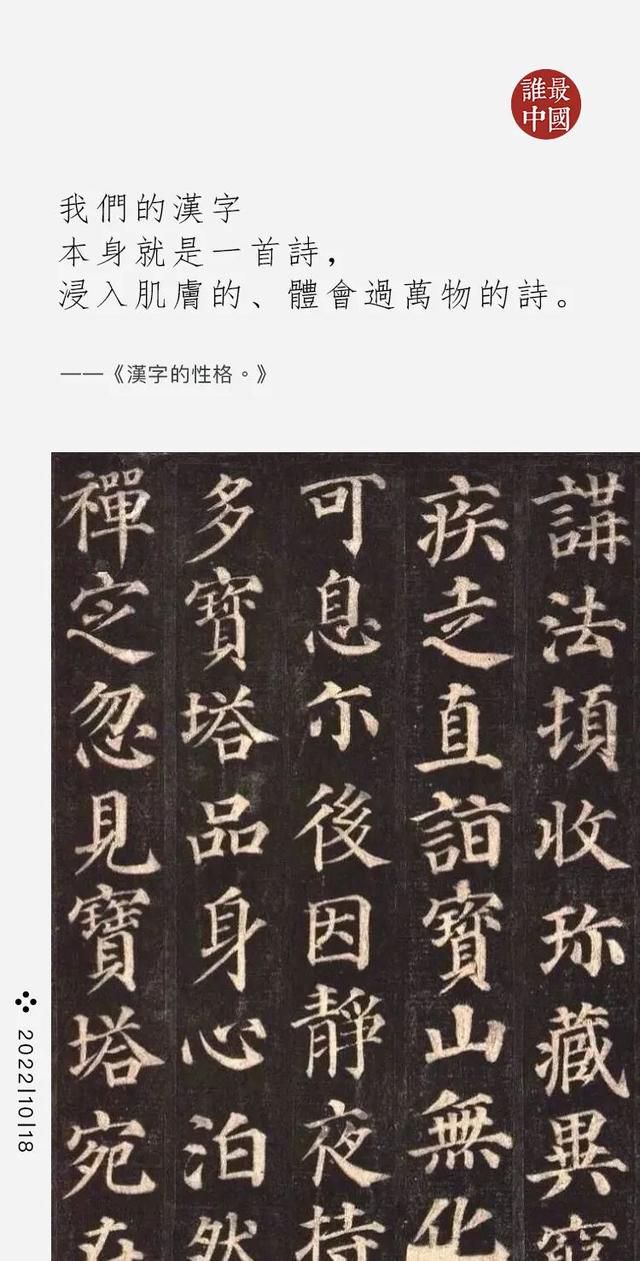 誰最
中國
我們的漢字
本身就是一首詩，
浸入肌膚的、體會過萬物的詩。
——《漢字的性格。》
講法頓收珎藏異窮
疾走直詣寶山無化
可息尒後因靜夜持
多寶塔品身心泊然
禪定忽見寶塔宛在
2022|10|18